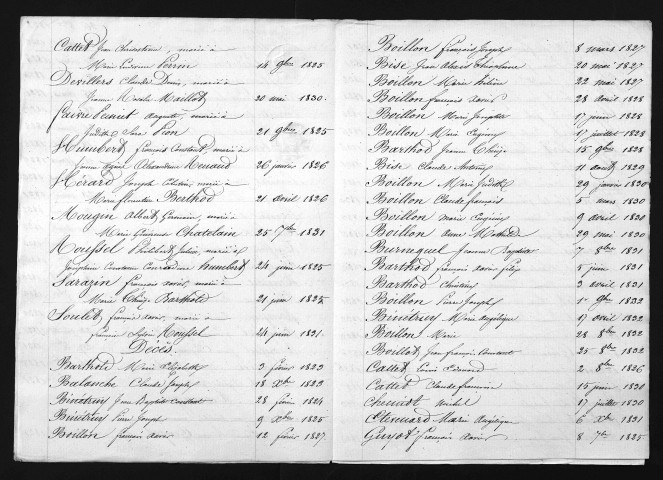 Cattet Jean Christostome, marié à
Marie Perrin 14 9bre 1825
Devillers Claude Denis, marié à
Jeanne Maillot 20 mai 1830.
Faivre Auguste, marié à
Judith Pion 21 9bre 1825
Humbert françois Constant, marié à
Jeanne Alexandrine Renaud 26 janvier 1826
Hérard Joseph Célestin, marié à
Marie florentine Barthod 21 avril 1826
Mougin Albert Germain, marié à
Marie Chatelain 25 7bre 1831
Roussel Philibert Julien, marié à
Joséphine Humbert 24 juin 1825
Sarazin françois xavier, marié à
Marie Thérèse Barthod 21 juin 1825
Soulet françois xavier, marié à
françoise Roussel 24 juin 1831.
Décès.
Barthod Marie Elisabeth 3 février 1823
Balanche Claude Joseph 18 Xbre 1823
Binétruy Jean Baptiste Constant 28 février 1824
Binétruy Pierre Joseph 9 Xbre 1825
Boillon françois xavier 12 février 1827.
Boillon françois Joseph 8 mars 1827
Bise Jean Alexis 20 mai 1827
Boillon Marie 22 mai 1827
Boillon françois xavier 28 avril 1828
Boillon Marie Josephte 17 juin 1828
Boillon Marie Eugénie 17 juillet 1828
Barthod Jeanne Thérèse 15 9bre 1828
Bise Claude Antoine 11 aout 1829
Boillon Marie Judith 29 janvier 1830
Boillon Claude françois 5 mars 1830
Boillon marie Eugénie 9 avril 1830
Boillon Anne 29 mai 1830
Burniquel Jeanne Baptiste 7 8bre 1831
Barthod françois xavier félix 5 juin 1831
Barthod Christine 3 avril 1831
Boillon Pierre Joseph 1er 9bre 1832
Binétruy Marie Angélique 17 avril 1832
Boillon Marie 28 8bre 1832
Boillot Jean françois Constant 25 8bre 1832
Cattet Louis Edouard 2 8bre 1826
Cattet Claude françois 15 juin 1830
Chenot Michel 17 juillet 1830
Etevenard Marie Angélique 6 Xbre 1831
Guyot françois xavier 8 7bre 1825